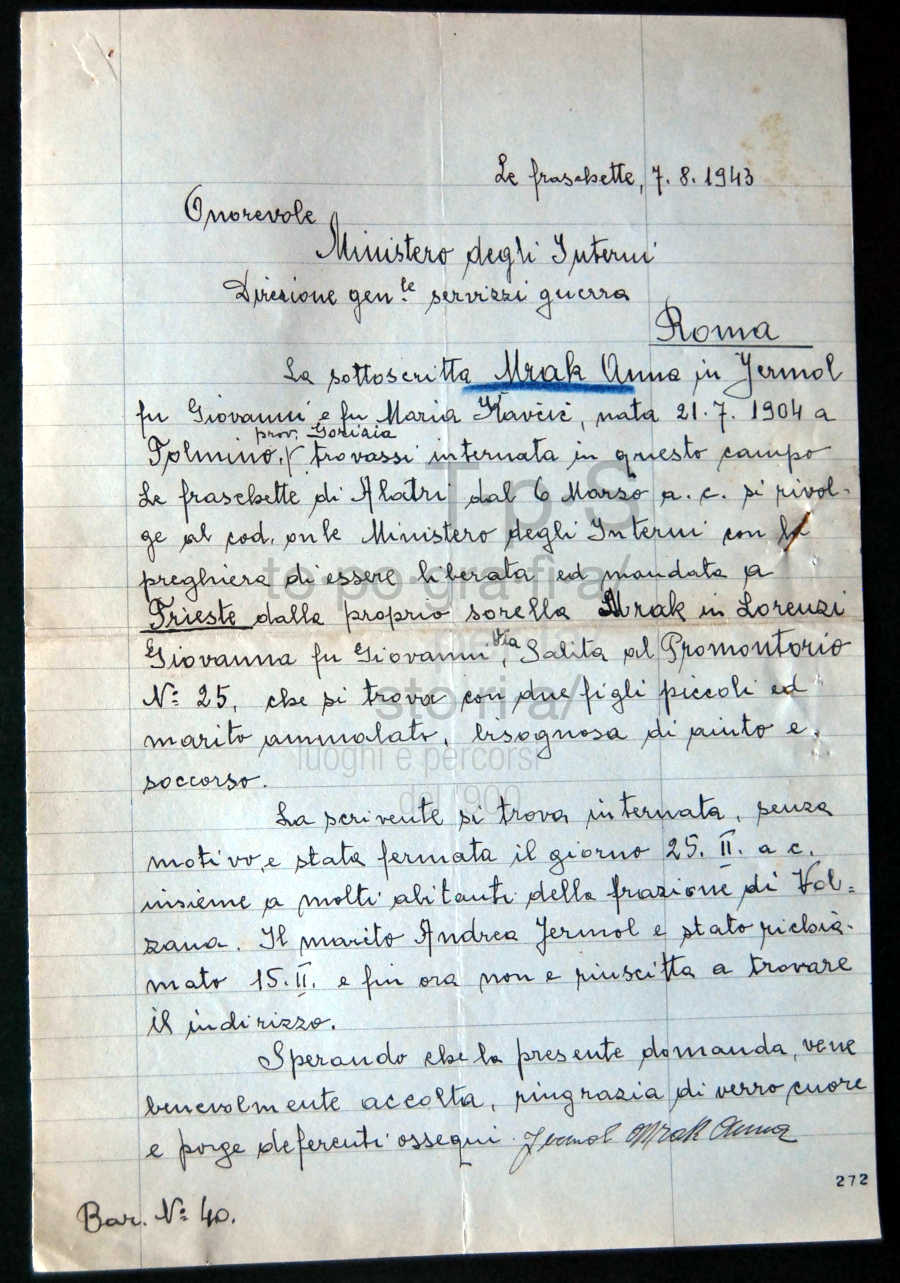 Le fraschette, 7. 8. 1943
Onorevole
Ministero degli Interni
Direzione gen.le servizzi guerra
Roma
La sottoscritta Mrak Anna in Jermol
fu Giovanni e fu Maria Klavčič, nata 21. 7. 1904 a
prov. Gorizia
Tolmino, trovassi internata in questo campo
Le fraschette di Alatri dal 6 Marso a. c. si rivol-
ge al cod. on le Ministero degli Interni con la
preghiera di essere liberata ed mandata a
Trieste dalla proprio sorella Mrak in Lorenzi
Giovanna fu Giovanni, Via Salita al Promontorio
N: 25, che si trova con due figli piccoli ed
marito ammalato, bisognosa di aiuto e
soccorso.
La scrivente si trova internata, senza
motivo, e stata fermata il giorno 25. II. a c.
insieme a molti abitanti della frazione di Vol=
zana. Il marito Andrea Jermol e stato richia-
mato 15. II. e fin ora non e riuscitta a trovare
il indirizzo.
Sperando che la presente domanda, vene
benevolmente accolta, ringrazia di verro cuore
e porge deferenti ossequi. Jermol Mrak Anna
272
Bar. N: 40.
T-p-S
to-po-gra-fi-a/
per la
sto-ri-a/
luoghi e percorsi
del 900